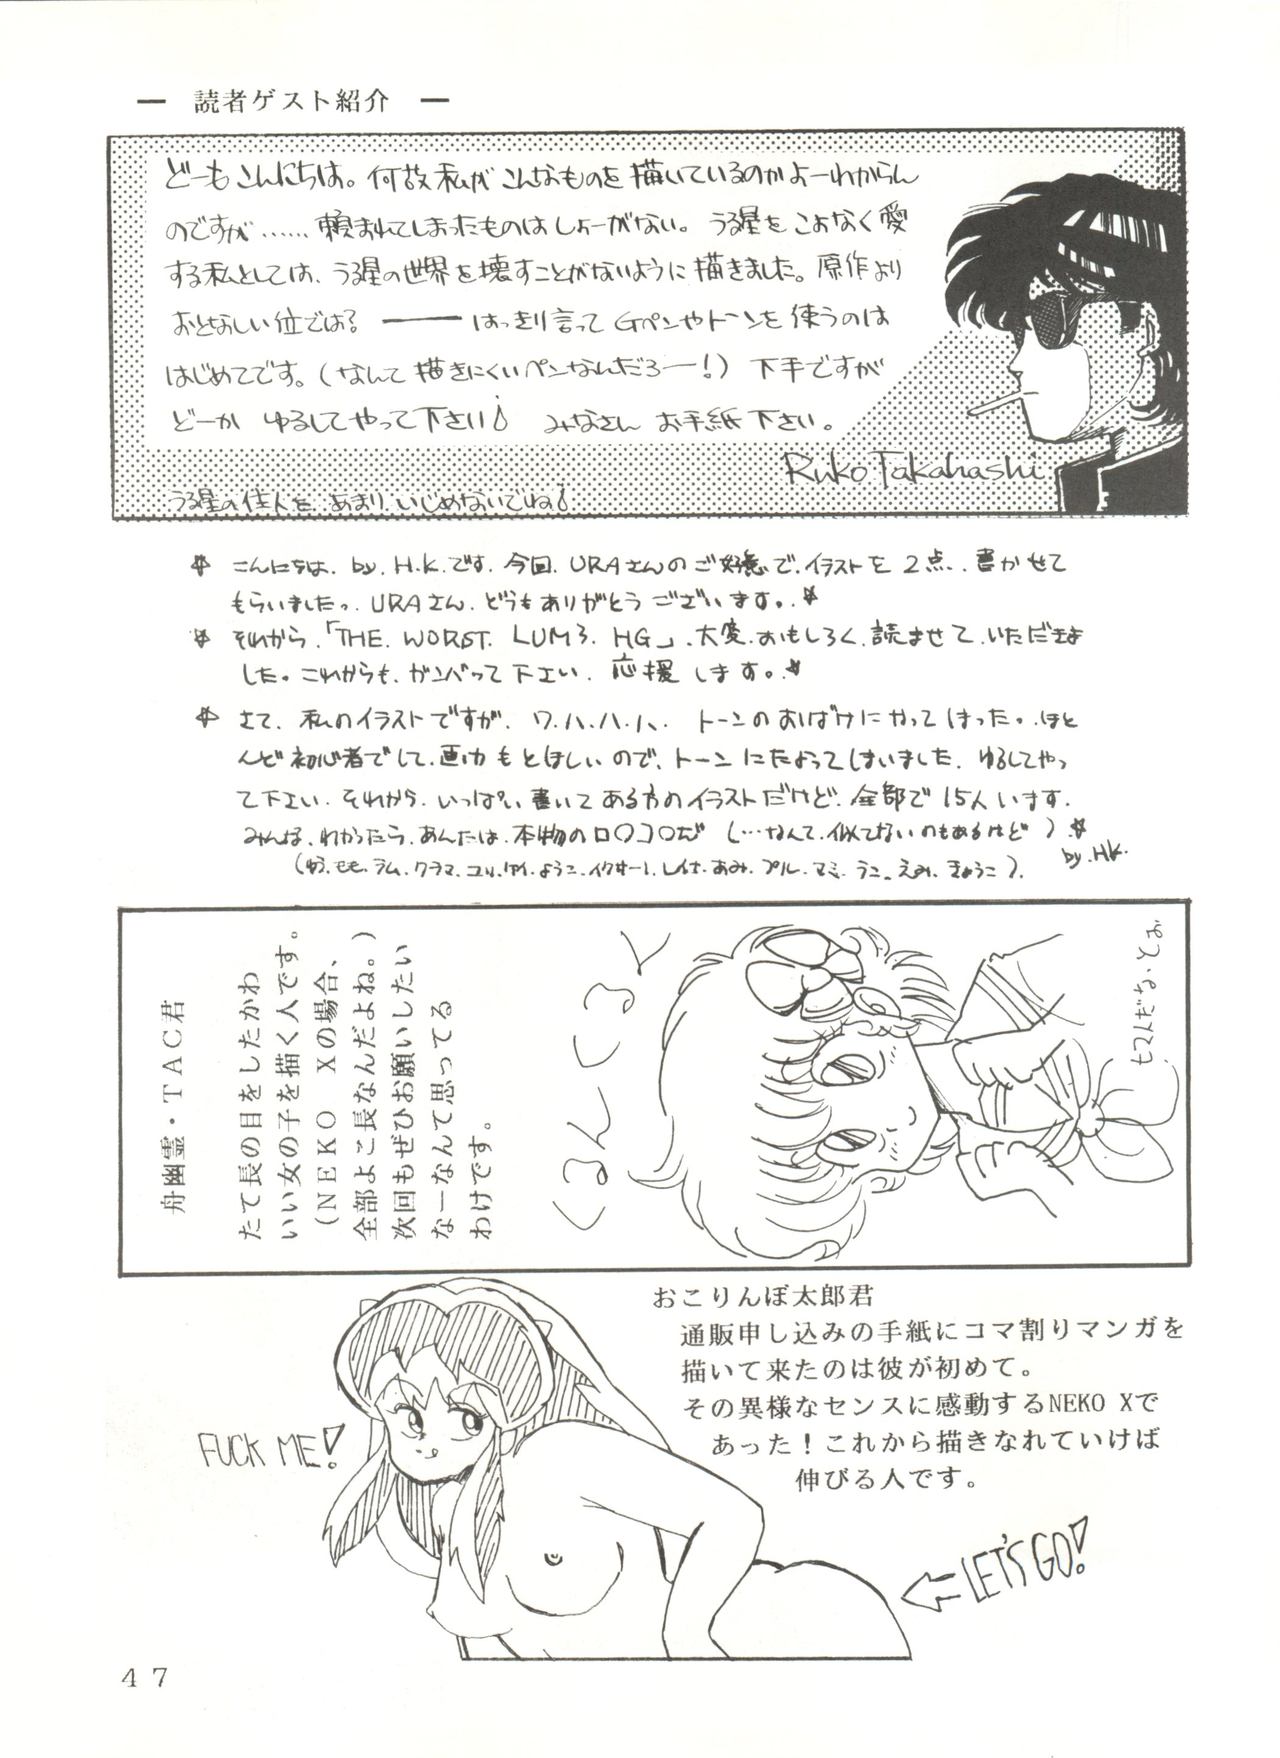 ― 読者ゲスト紹介 ―
どーもこんにちは。何故私がこんなものを描いているのかよーわからん
のですが……頼まれてしまったものはしょーがない。うる星をこよなく愛
する私としては、うる星の世界を壊すことがないように描きました。原作より
おとなしい位では? ―― はっきり言ってGペンやトーンを使うのは
はじめてです。(なんて描きにくいペンなんだろー!) 下手ですが
どーか ゆるしてやって下さい! みなさん お手紙下さい。
Ruko Takahashi
うる星の住人を あまり いじめないでね!
☆ こんにちは. by. H.K.です. 今回. URAさんのご好意で.イラストを 2点. 書かせて
もらいましたっ. URAさん. どうもありがとう ございます。.☆
☆ それから.「THE. WORST. LUM3. HG」. 大変.おもしろく.読ませて.いただきま
した。これからも.ガンバって下さい. 応援 します。.☆
☆ さて. 私のイラストですが. ワ.ハ.ハ.ハ. トーンのおばけにやってしまった。.ほと
んど初心者でして.画力もとぼしいので.トーンにたよってしまいました. ゆるしてやっ
て下さい. それから. いっぱい書いてある方のイラストだけど. 全部で15人います.
みんな.わかったら.あんたは.本物のロ○コ○だ (…なんて.似てないのもあるけど)☆
by.H.K.
(ゆう.もも.ラム.クラマ.ユリ.ゆい.ようこ.イクサー1.しいな.あみ.プル.マミ.うこ.えみ.きょうこ).
舟幽霊・TAC君
たて長の目をしたかわ
いい女の子を描く人です。
(NEKO Xの場合、
全部よこ長なんだよね。)
次回もぜひお願いしたい
なーなんて思ってる
わけです。
くるんくるん
おこりんぼ太郎君
通販申し込みの手紙にコマ割りマンガを
描いて来たのは彼が初めて。
その異様なセンスに感動するNEKO Xで
あった!これから描きなれていけば
伸びる人です。
FUCK ME!
LET'S GO!
47